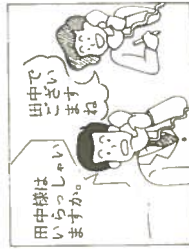 田中様は
いらっしゃい
ますか。
田中で
ござい
ます
ね